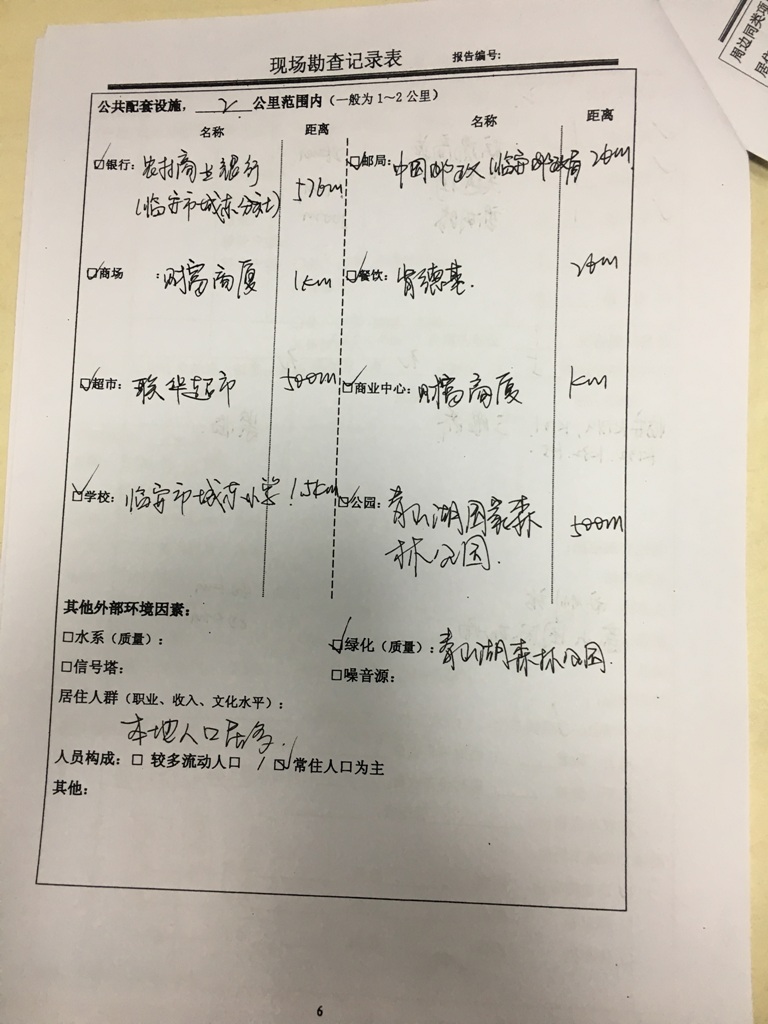 现场勘查记录表 报告编号:
公共配套设施, 2 公里范围内(一般为1~2公里)
名称 距离 名称 距离
☑银行: 农村商业银行
(临安市城东分社)
☑邮局: 中国邮政(临安邮政
☑商场 : 财富商厦 1km ☑餐饮: 肯德基.
☑超市: 联华超市 500m ☑商业中心: 财富商厦 km
☑学校: 临安市城东小学 1.5km ☑公园: 青山湖国家森
林公园. 500m
其他外部环境因素:
□水系(质量): ☑绿化(质量): 青山湖森林公园.
□信号塔: □噪音源:
居住人群(职业、收入、文化水平):
本地人口居多.
人员构成: □ 较多流动人口 / ☑ 常住人口为主
其他:
6
周边同类项